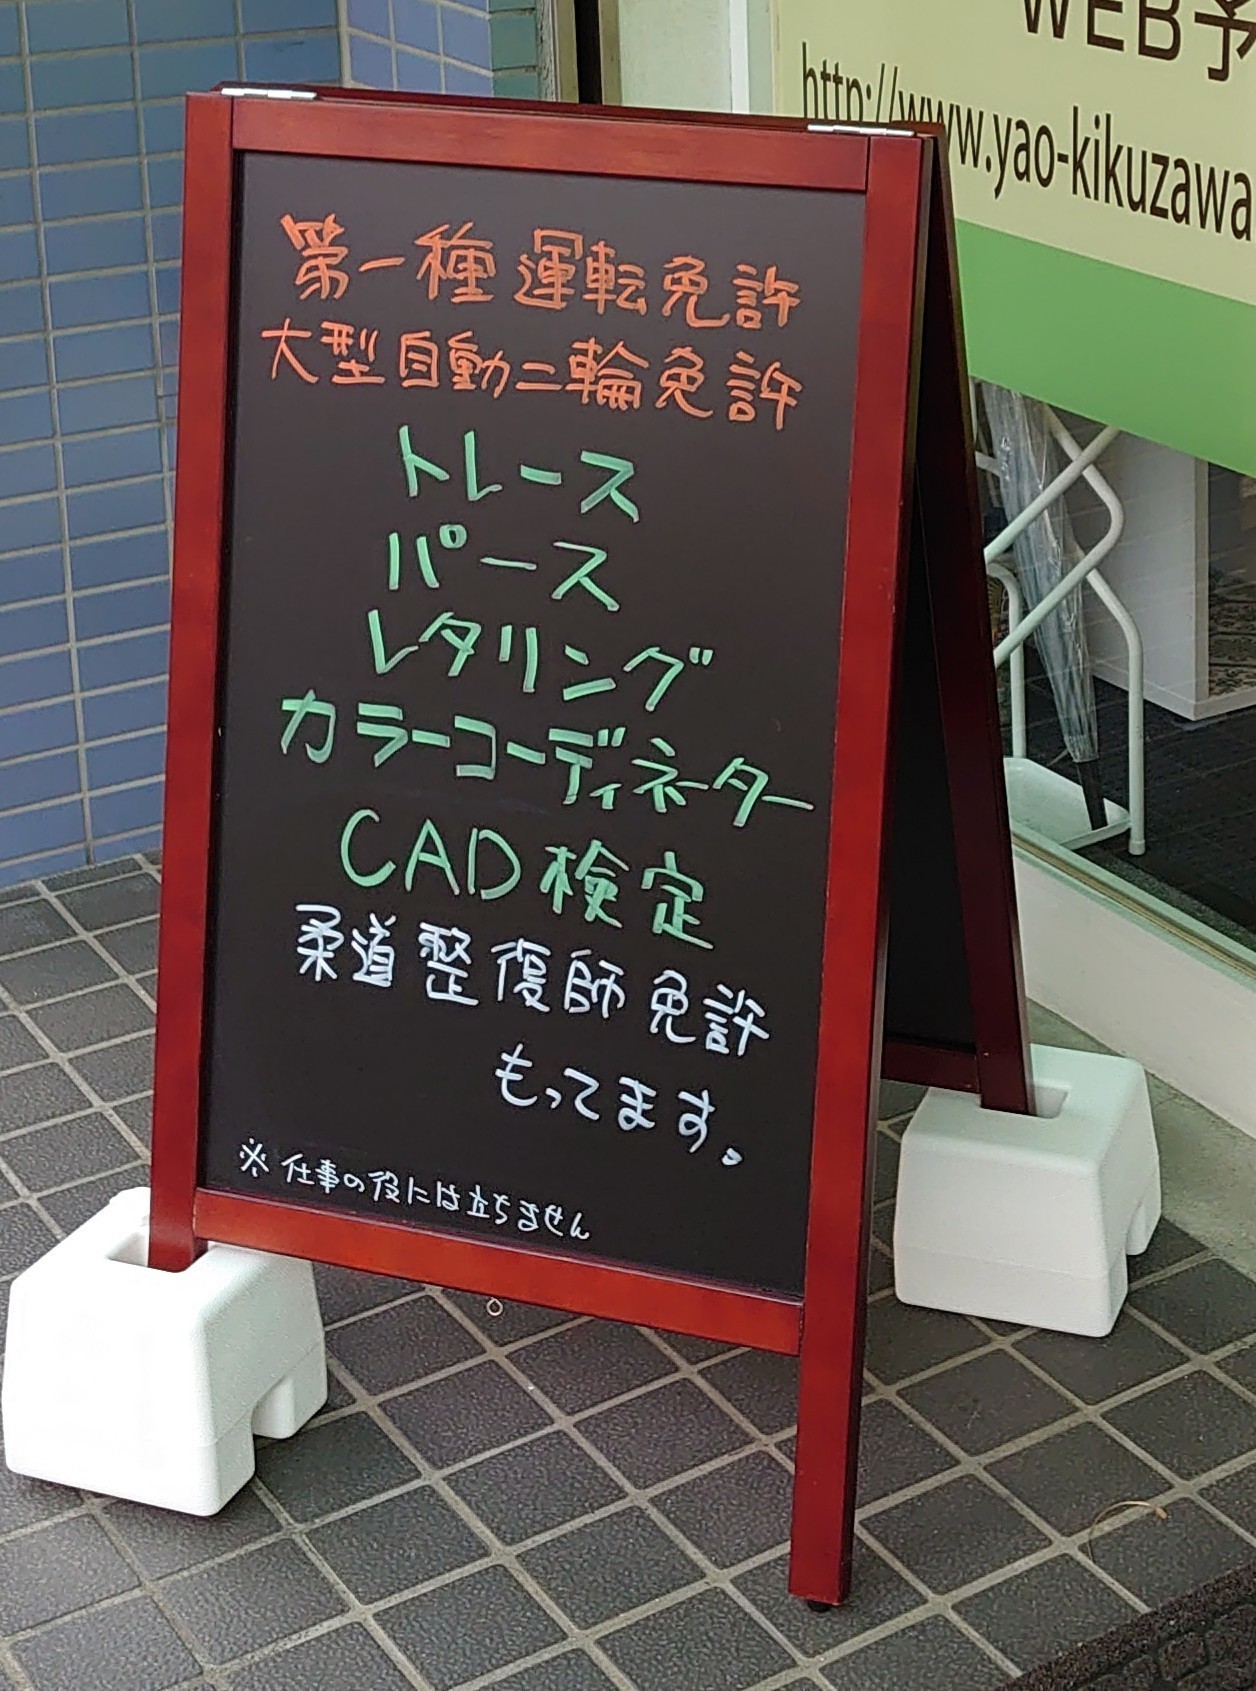 WEB予
http://www.yao-kikuzawa
第一種運転免許
大型自動二輪免許
トレース
パース
レタリング
カラーコーディネーター
CAD検定
柔道整復師免許
もってます。
※仕事の役には立ちません